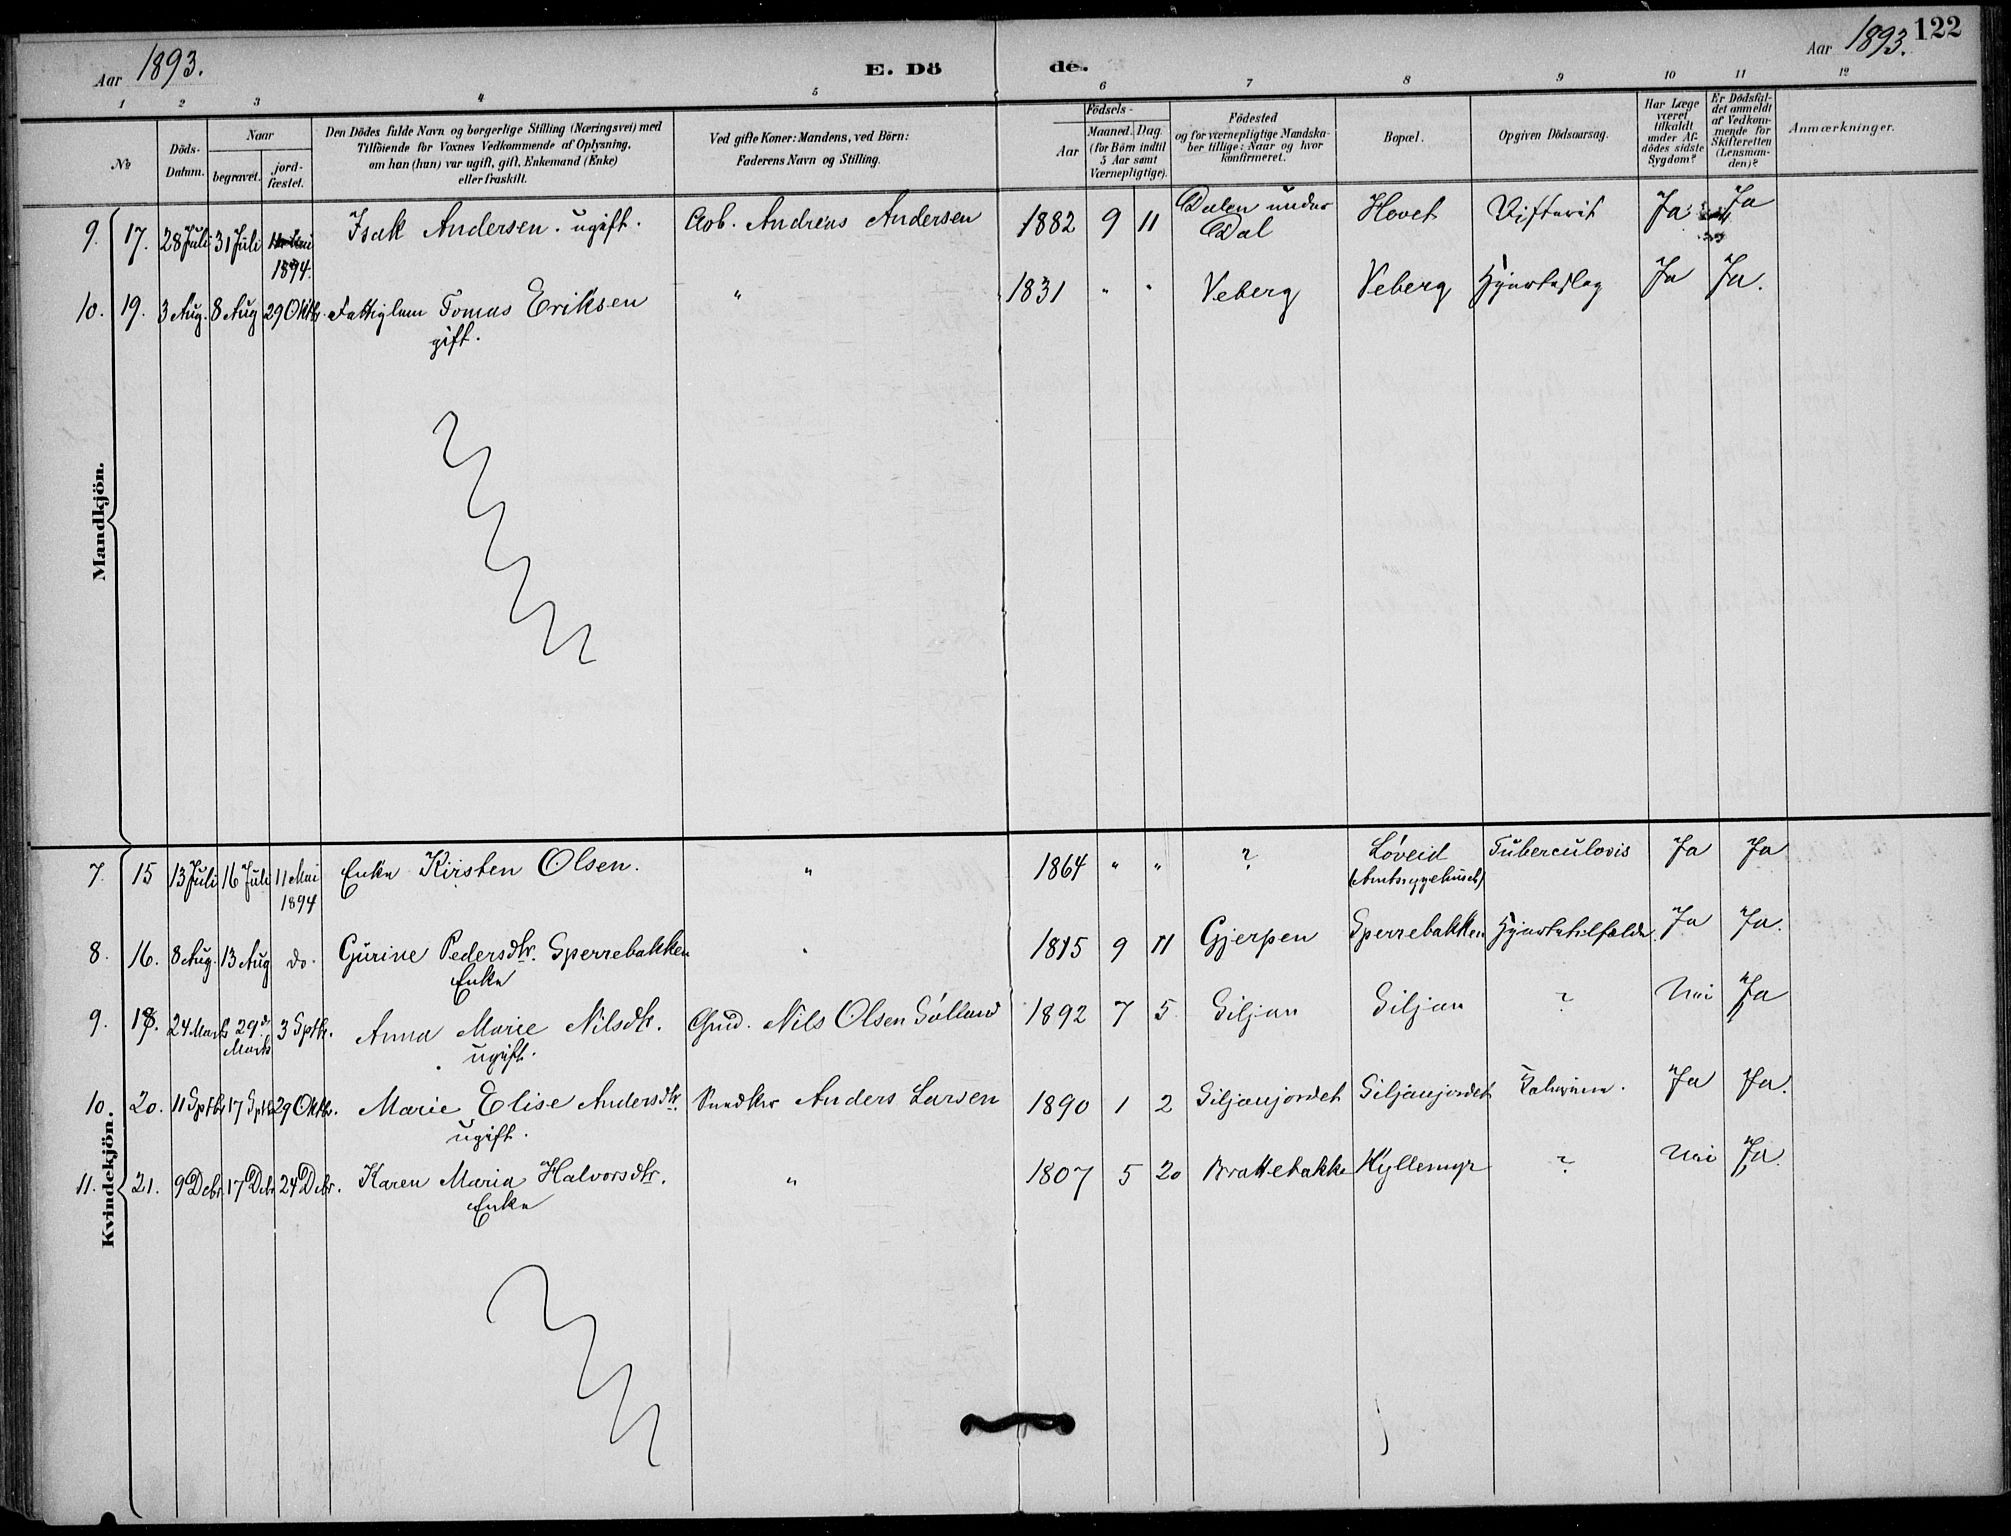 Aar 1893. E. Dö de. Aar 1893. 122
1 2 3 4 5 6 7 8 9 10 11 12
№
Döds-
Datum.
Naar
begravet.
jord-
fæstet.
Den Dödes fulde Navn og borgerlige Stilling (Næringsvei) med
Tilföiende for Voxnes Vedkommende af Oplysning,
om han (hun) var ugift, gift, Enkemand (Enke)
eller fraskilt.
Ved gifte Koner: Mandens, ved Börn:
Faderens Navn og Stilling.
Födsels-
Aar
Maaned. Dag.
(for Börn indtil
5 Aar samt
Værnepligtige).
Födested
og for værnepligtige Mandska-
ber tillige: Naar og hvor
konfirmeret.
Bopæl.
Opgiven Dödsaarsag.
Har Læge
været
tilkaldt
under Af-
dödes sidste
Sygdom?
Er Dödsfal-
det anmeldt
af Vedkom-
mende for
Skifteretten
(Lensman-
den)?
Anmærkninger.
Mandkjön.
9. 17. 28 Juli 31 Juli 11 Mai 1894. Isak Andersen. ugift. Arb. Andreas Andersen 1882 9 11 Dalen under Dal Hovet Difterit Ja Ja
10. 19. 3 Aug. 8 Aug 29 Oktb. Fattiglem Tomas Eriksen gift. " 1831 " " Veberg Veberg Hjerteslag Ja Ja.
Kvindekjön.
7. 15 13 Juli 16 Juli 11 Mai 1894 Enke Kirsten Olsen. " 1864 " " ? Løveid (Amtssygehuset) Tuberculosis Ja Ja
8. 16. 8 Aug. 13 Aug do. Gurine Pedersdtr. Sperrebakken Enke " 1815 9 11 Gjerpen Sperrebakken Hjertetilfælde. Ja Ja.
9. 18. 24 Marts 29de Marts 3 Sptb. Anna Marie Nilsdtr. ugift. Gmd. Nils Olsen 1892 7 5 Siljan Siljan ? Nei Ja
10. 20. 11 Sptb 17 Sptb 29 Oktb. Marie Elise Andersdtr. ugift. Anders Larsen 1890 1 2 Siljanjordet Siljanjordet Ja Ja.
11. 21. 9 Debr 17 Debr 24 Debr. Karen Maria Halvorsdtr. Enke " 1807 5 20 Brattebakke Kyllemyr ? Nei Ja.